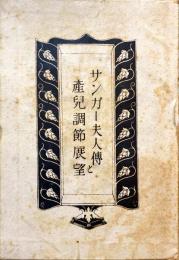 サンガー夫人傳と
產兒調節展望